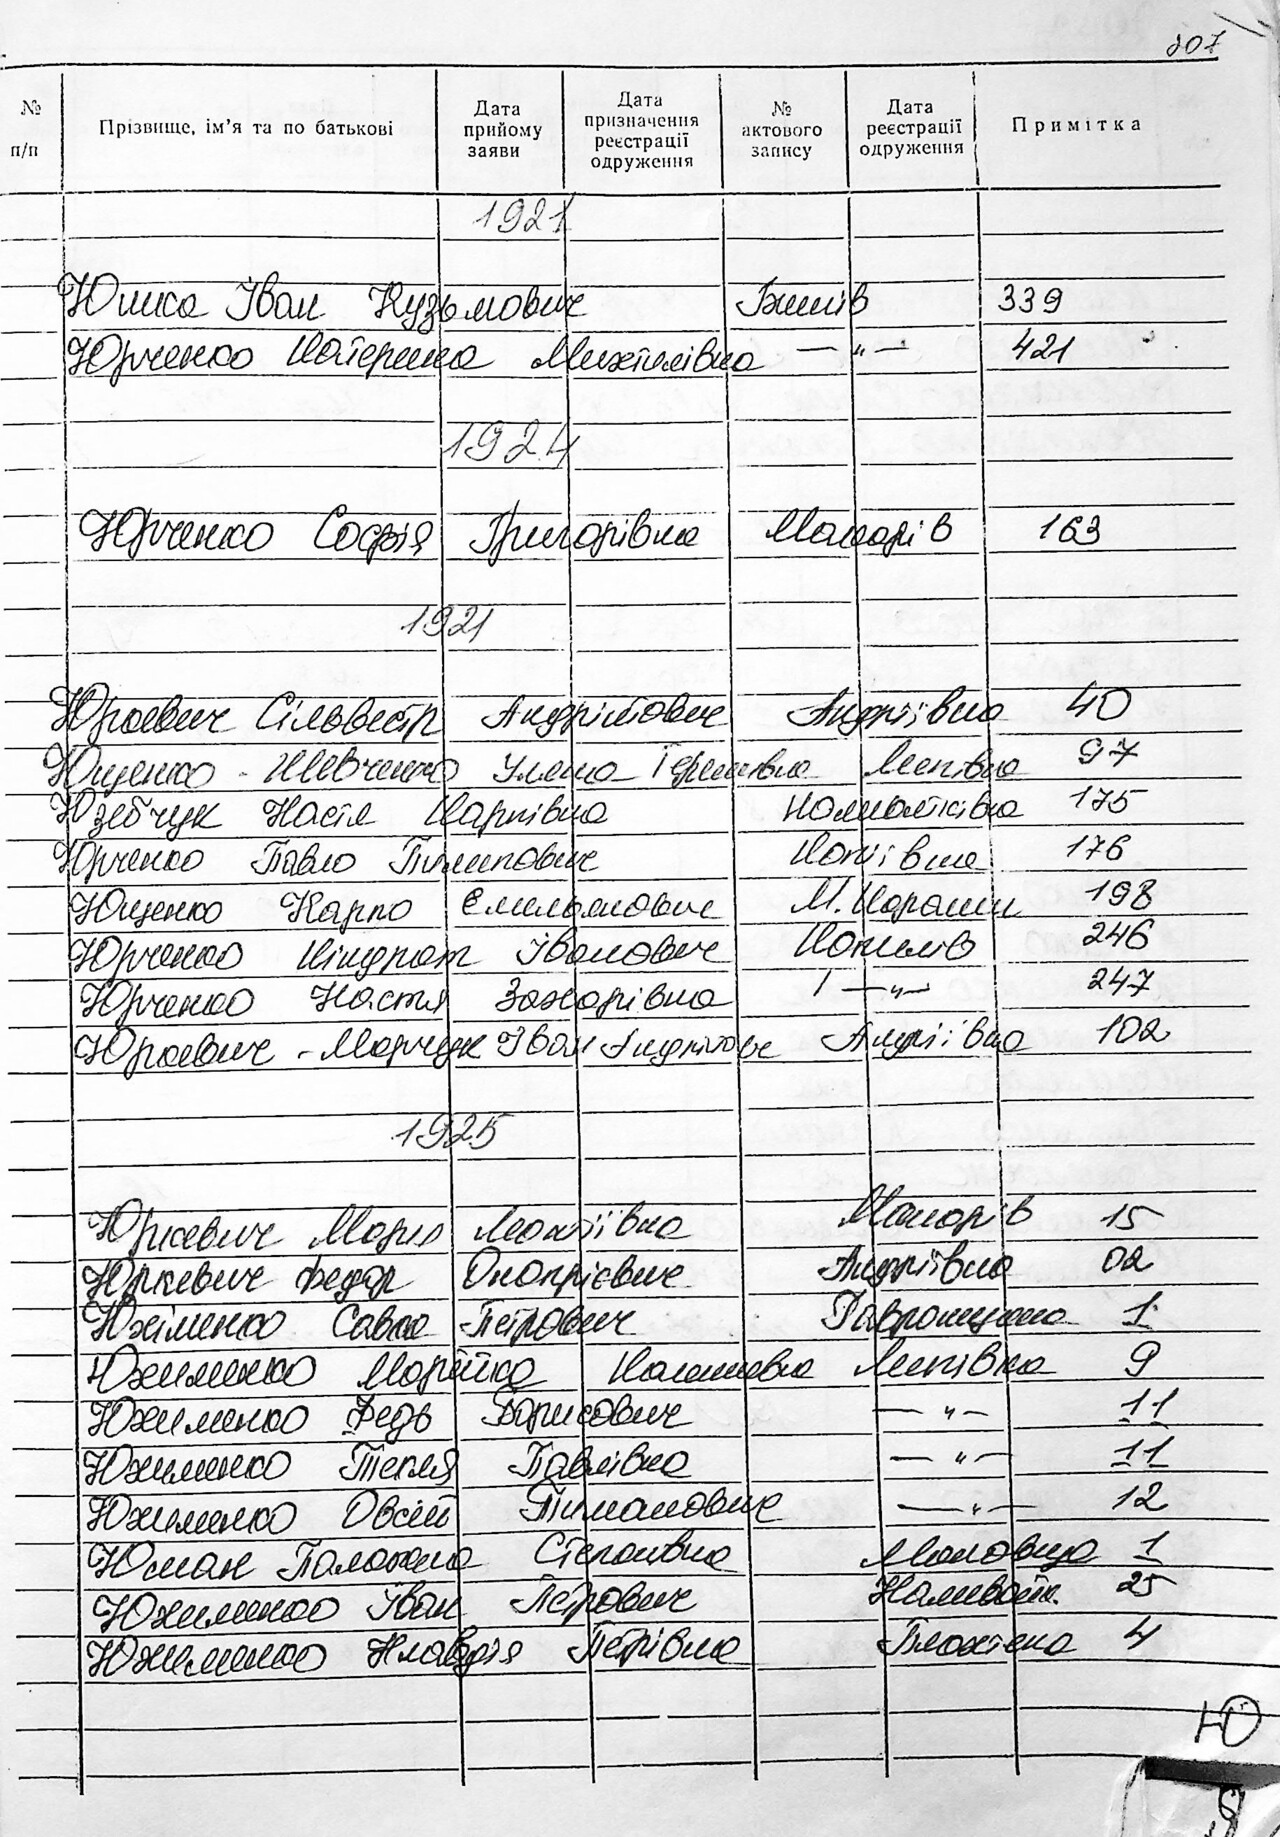 207
№ п/п
Прізвище, ім'я та по батькові
Дата прийому заяви
Дата призначення реєстрації одруження
№ актового запису
Дата реєстрації одруження
Примітка
1921
Іван Кузьмович 339
Юрченко Катерина Михайлівна — „ — 421
1924
Юрченко Софія Григорівна Макарів 163
1921
Юркевич Сільвестр Андріївка 40
Ющенко - Шевченко Уляна Липівка 97
Юзебчук Настя Карпівна 175
Юрченко Павло Пилипович Копіївка 176
Ющенко Карпо Ємельянович М. Карашин 198
Юрченко Кіндрат Іванович Копилів 246
Юрченко Настя Захарівна — „ — 247
Юркевич - Марчук Іван Андріївка 102
1925
Юркевич Марія Макарів 15
Юркевич Федор Онопрієвич Андріївка 02
Юхіменко Савка Петрович Гавронщина 1
Юхименко Марійка Липівка 9
Юхименко Федь Борисович — „ — 11
Юхименко Текля Павлівна — „ — 11
Юхименко Овсій — „ — 12
Юман Палажка Степанівна Маковище 1
Юхименко Іван Петрович Наливайк. 25
Юхименко Клавдія Петрівна Плахтянка 4
Ю